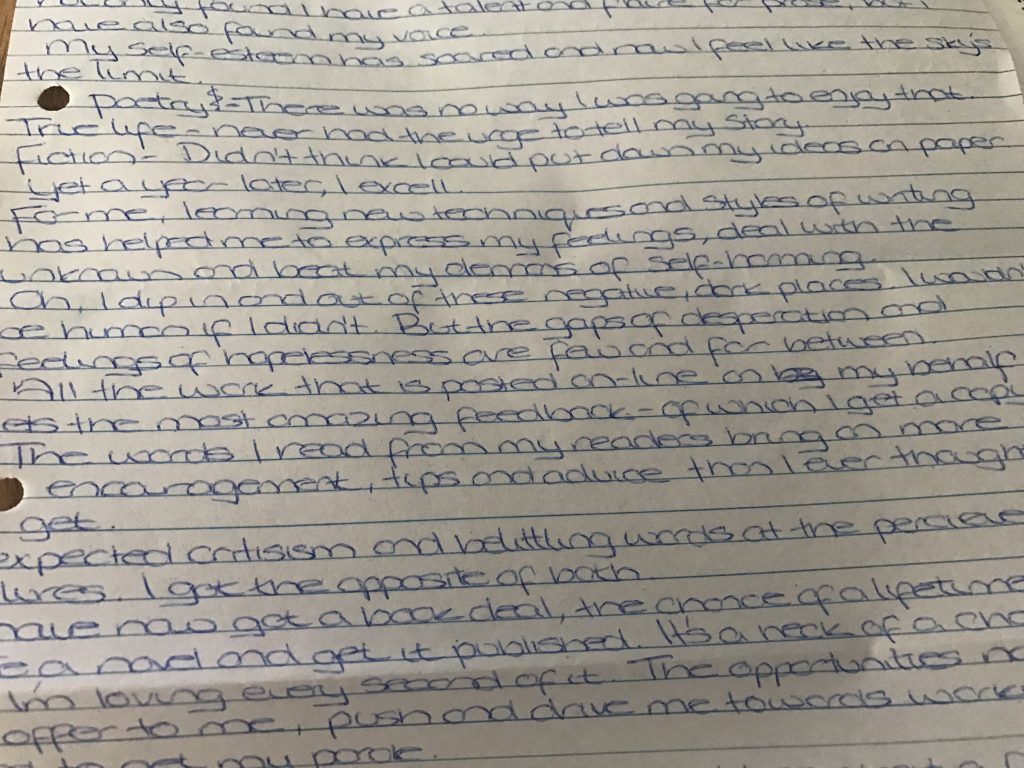 found I have a talent and for prose, but I
have also found my voice.
My self-esteem has soared and now I feel like the sky's
the limit.
Poetry - There was no way I was going to enjoy that.
True life - never had the urge to tell my story
Fiction - Didn't think I could put down my ideas on paper
Yet a year later, I excell.
For me, learning new techniques and styles of writing
has helped me to express my feelings, deal with the
unknown and beat my demons of self-harming.
Oh, I dip in and out of these negative, dark places. I wouldn'
be human if I didn't. But the gaps of desperation and
feelings of hopelessness are few and far between.
All the work that is posted on-line on my behalf
ets the most amazing feedback - of which I get a copy
The words I read from my readers bring on more
encouragement, tips and advice than I ever though
get.
expected critisism and belittling words at the percieve
lures. I got the opposite of both.
have now got a book deal, the chance of a lifetime
e a novel and get it published. It's a heck of a cha
I'm loving every second of it. The opportunities no
offer to me, push and drive me towards work
to get my parole.